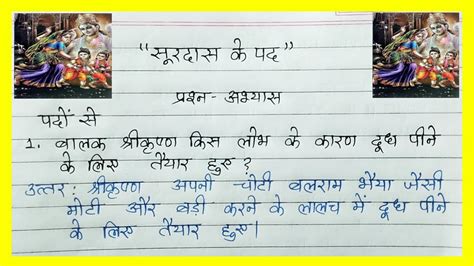 “सूरदास के पद”
प्रश्न- अभ्यास
पदों से
1. बालक श्रीकृष्ण किस लोभ के कारण दूध पीने
के लिए तैयार हुए ?
उत्तर : श्रीकृष्ण अपनी चोटी बलराम भैया जैसी
मोटी और बड़ी करने के लालच में दूध पीने
के लिए तैयार हुए।